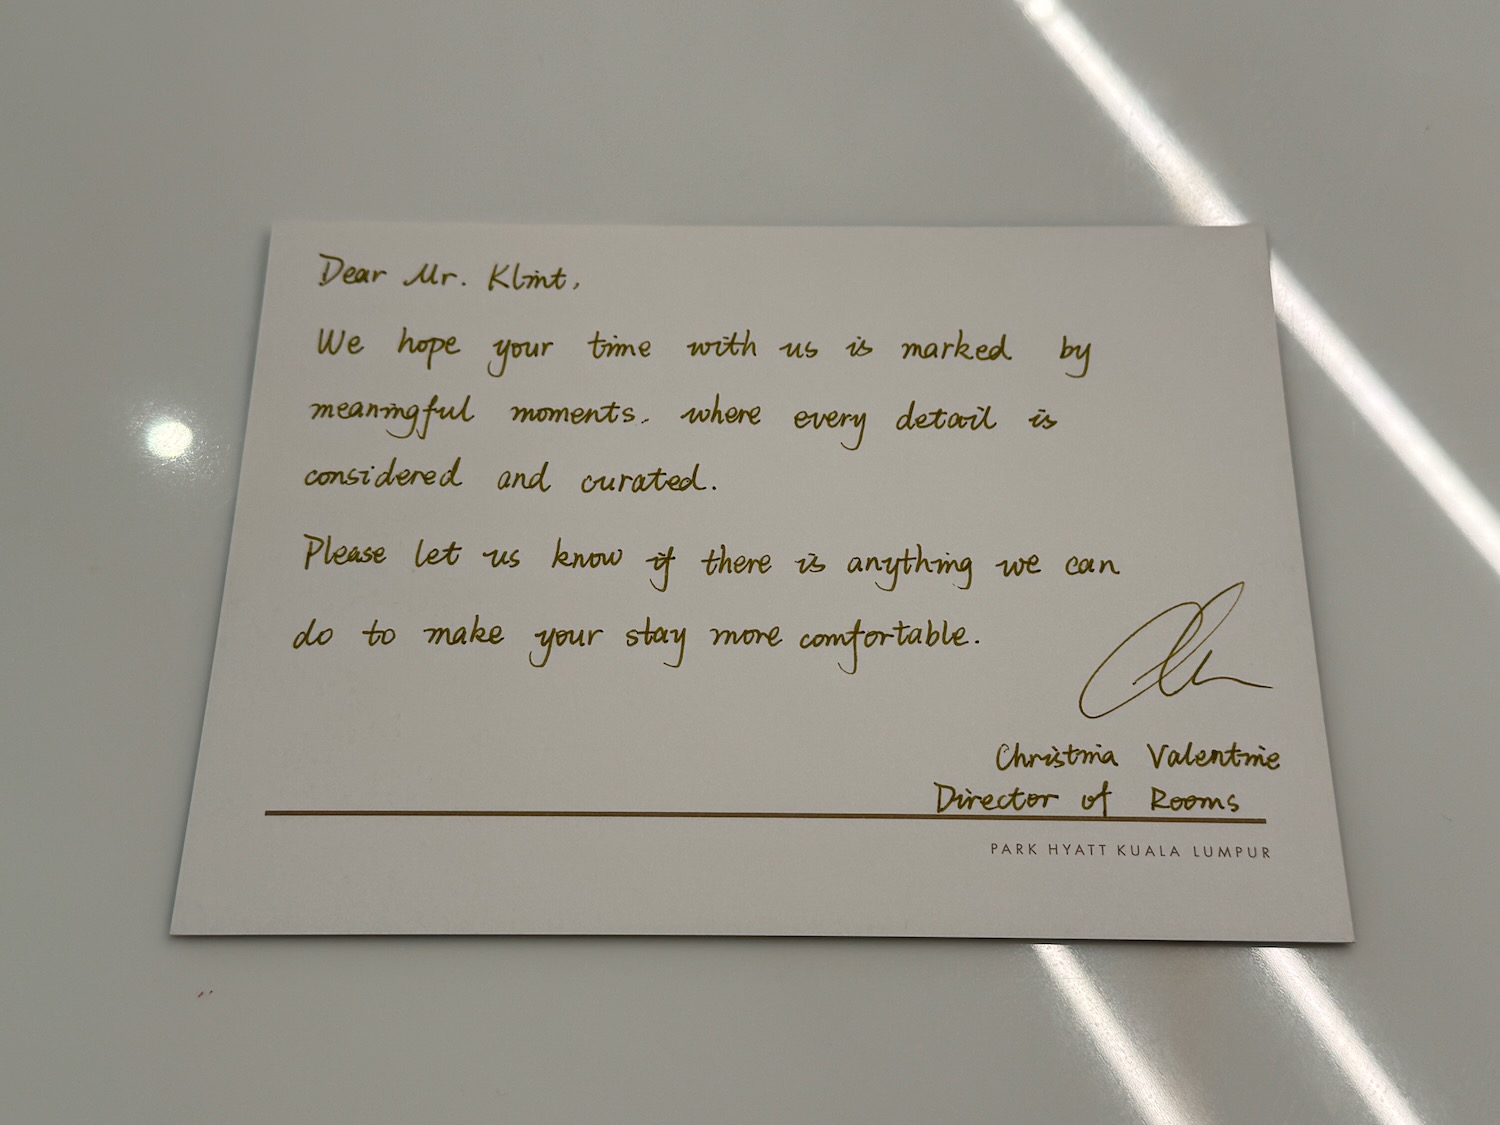 Dear Mr. Klint,
We hope your time with us is marked by
meaningful moments, where every detail is
considered and curated.
Please let us know if there is anything we can
do to make your stay more comfortable.
Christina Valentine
Director of Rooms
PARK HYATT KUALA LUMPUR